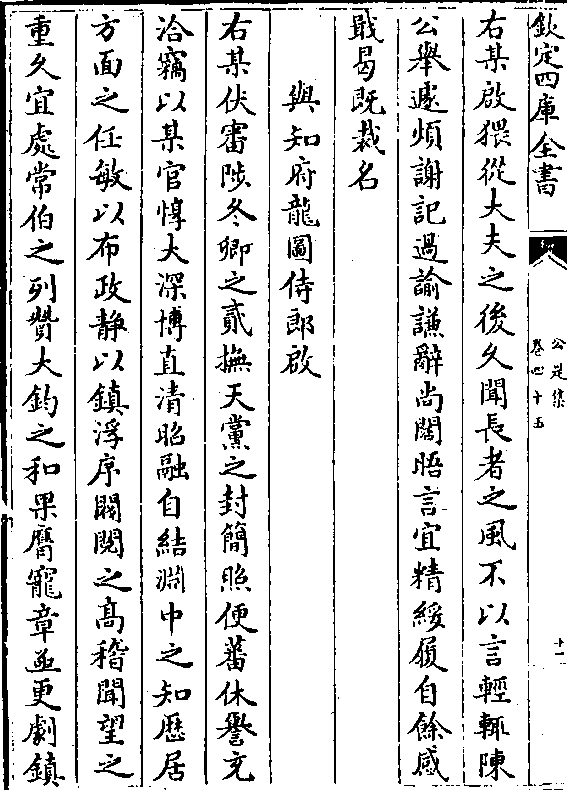 欽定四庫全書
公是集
卷四十五
十一
右某啟猥從大夫之後久聞長者之風不以言輕輒陳
公舉遽煩謝記過諭謙辭尚闊晤言宜精綏履自餘感
戢曷既裁名
與知府龍圖侍郎啟
右某伏審陟冬卿之貳撫天黨之封簡照便蕃休譽充
洽竊以某官惇大深博直清昭融自結淵中之知歷居
方面之任敏以布政静以鎮浮序閥閱之髙稽聞望之
重久宜處常伯之列贊大鈞之和果膺寵章並更劇鎮